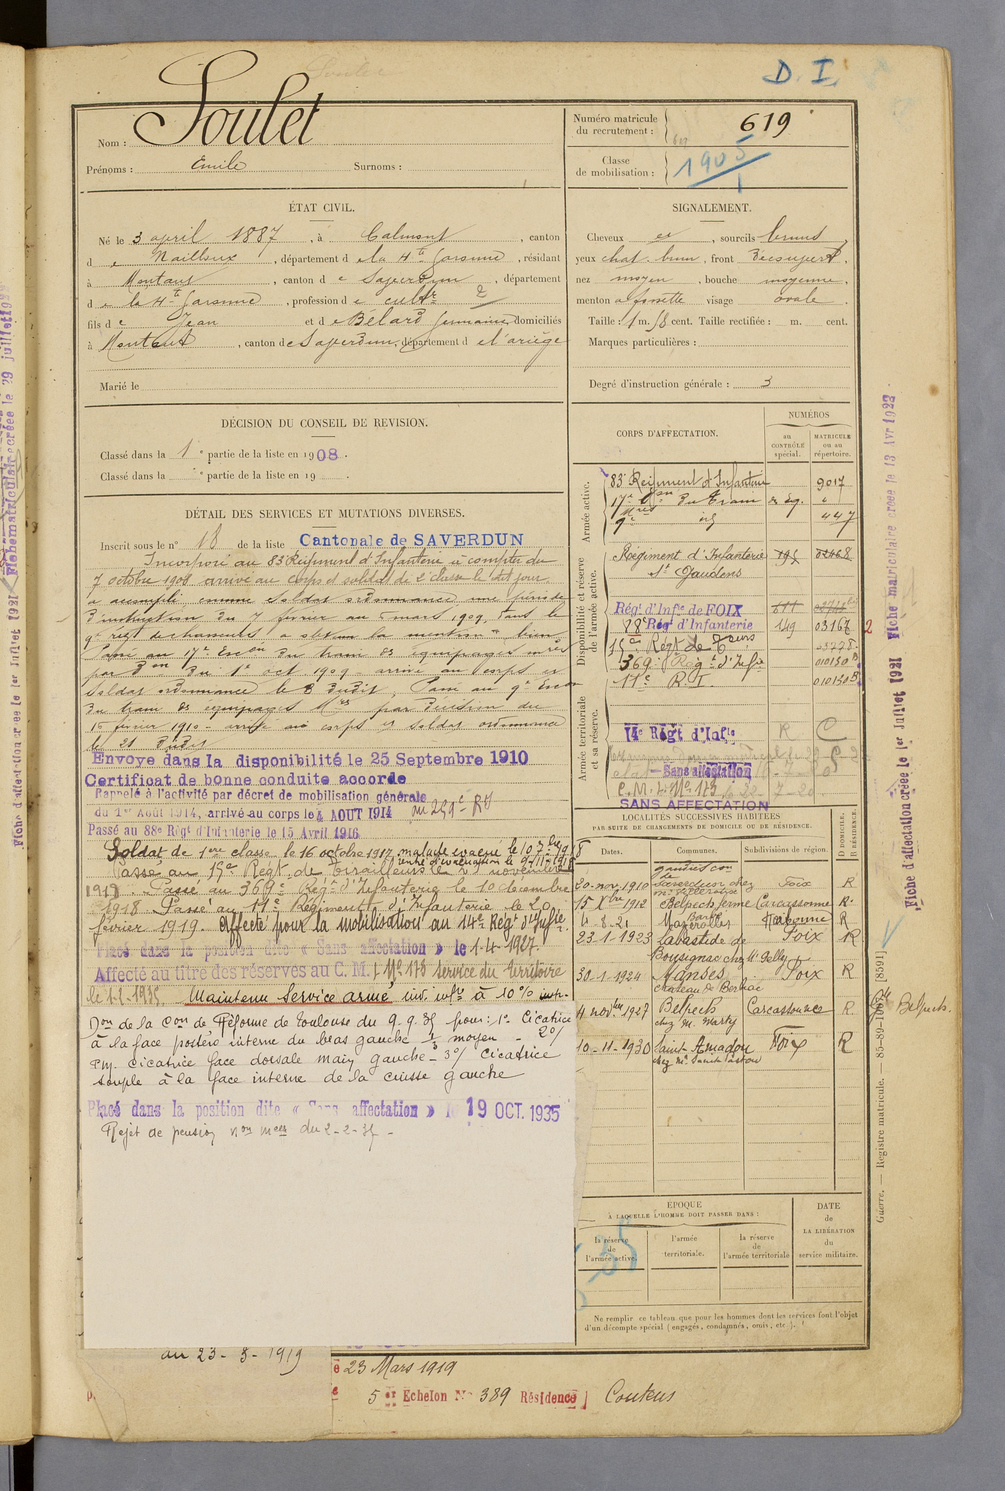 D. I.
Nom : Soulet
Prénoms : Emile Surnoms :
Numéro matricule du recrutement : 619
Classe de mobilisation : 1905
ÉTAT CIVIL.
Né le 3 april 1887, à Calmont, canton
d e Nailloux, département d e la Hte Garonne, résidant
à Montaut, canton d e Saverdun, département
d e la Hte Garonne, profession d e cultr 2
fils d e Jean et d e Bélard Germaine domiciliés
à Montaut, canton d e Saverdun, département d e l'ariège
Marié le
SIGNALEMENT.
Cheveux et, sourcils bruns
yeux chat. brun, front découvert,
nez moyen, bouche moyenne,
menton à fossette visage ovale
Taille : 1 m. 58 cent. Taille rectifiée : m. cent.
Marques particulières :
Degré d'instruction générale : 3
DÉCISION DU CONSEIL DE REVISION.
Classé dans la 1e partie de la liste en 1908.
Classé dans la e partie de la liste en 19 .
DÉTAIL DES SERVICES ET MUTATIONS DIVERSES.
Inscrit sous le n° 18 de la liste Cantonale de SAVERDUN
Incorporé au 83e Régiment d'Infanterie à compter du
7 octobre 1908 arrivé au corps et soldat de 2e classe le dit jour
a accompli comme soldat ordonnance une période
d'instruction du 7 février au 5 mars 1909, dans le
9e régt de chasseurs a obtenu la mention "bien"
Passé au 17e Escon du train des équipages mres
par Don du 1er oct. 1909 arrivé au corps et
soldat ordonnance le 8 dudit. Passé au 9e Escon
du train des équipages Mres par Décision du
15 février 1910 arrivé au corps et soldat ordonnance
le 21 dudit
Envoyé dans la disponibilité le 25 Septembre 1910
Certificat de bonne conduite accordé
Rappelé à l'activité par décret de mobilisation générale
du 1er Août 1914, arrivé au corps le 4 AOUT 1914 au 259e RI
Passé au 88e Régt d'Infanterie le 15 Avril 1916
Soldat de 1ere classe le 16 octobre 1917, malade évacué le 10 7bre 1918
rentré d'évacuation le 9-11-1918
Passé au 15e Régt de tirailleurs le 21 novembre
1918. Passé au 369e Régt d'Infanterie le 10 décembre
1918. Passé au 11e Régiment d'Infanterie le 20
février 1919. Affecté pour la mobilisation au 14e Régt d'Infie.
Placé dans la position dite « Sans affectation » le 1-4-1927.
Affecté au titre des réserves au C. M. I. N° 173 service du territoire
le 1-1-1935. Maintenu Service armé, inv. infre à 10%
Don de la Con de Réforme de Toulouse du 9.9.35 pour: 1° Cicatrice
à la face postéro interne du bras gauche 1/3 moyen - 2°/
cm. cicatrice face dorsale main gauche - 3°/ Cicatrice
souple à la face interne de la cuisse gauche
Placé dans la position dite « Sans affectation » le 19 OCT. 1935
Rejet de pension
au 23-3-1919
23 Mars 1919
5e Echelon N° 389 Résidence Coutens
CORPS D'AFFECTATION.
NUMÉROS
au CONTRÔLE spécial.
MATRICULE ou au répertoire.
Armée active.
83e Régiment d'Infanterie 9017
17e Eson du Train des éq. "
9e id 447
Disponibilité et réserve de l'armée active.
Régiment d'Infanterie 195
St Gaudens
Régt d'Infie de FOIX
88e Régt d'Infanterie 149 03167
15e Régt de Teurs
369e Régt d'Infie 010150
11e R.I. 010150
Armée territoriale et sa réserve.
14e Régt d'Infie R C
Sans affectation
C. M. I. N° 173
SANS AFFECTATION
LOCALITÉS SUCCESSIVES HABITÉES
PAR SUITE DE CHANGEMENTS DE DOMICILE OU DE RÉSIDENCE.
Dates. Communes. Subdivisions de région. D DOMICILE. R RÉSIDENCE
20 nov. 1910 Saverdun chez Foix R
15 Xbre 1912 Belpech ferme Carcassonne R
4-8-21 Mazerolles Narbonne R
23-1-1923 Labastide de Foix R
Bousignac chez Mr Gelly
30-1-1924 Manses Foix R
chateau de
4 novbre 1927 Belpech Carcassonne R
chez M. Marty
10-11-1930 Saint Amadou Foix R
ÉPOQUE
À LAQUELLE L'HOMME DOIT PASSER DANS :
la réserve de l'armée active.
l'armée territoriale.
la réserve de l'armée territoriale
DATE de LA LIBÉRATION du service militaire.
Ne remplir ce tableau que pour les hommes dont les services font l'objet
d'un décompte spécial (engagés, condamnés, omis, etc.).
Guerre. — Registre matricule. — 85-89-1908. [8591]
Belpech.
Fiche d'affectation créée le 1er Juillet 1921
Fiche matriculaire créée le 13 Avr 1922
Fiche d'affectation créée le 1er Juillet 1921
Fiche matriculaire créée le 29 juillet 1922